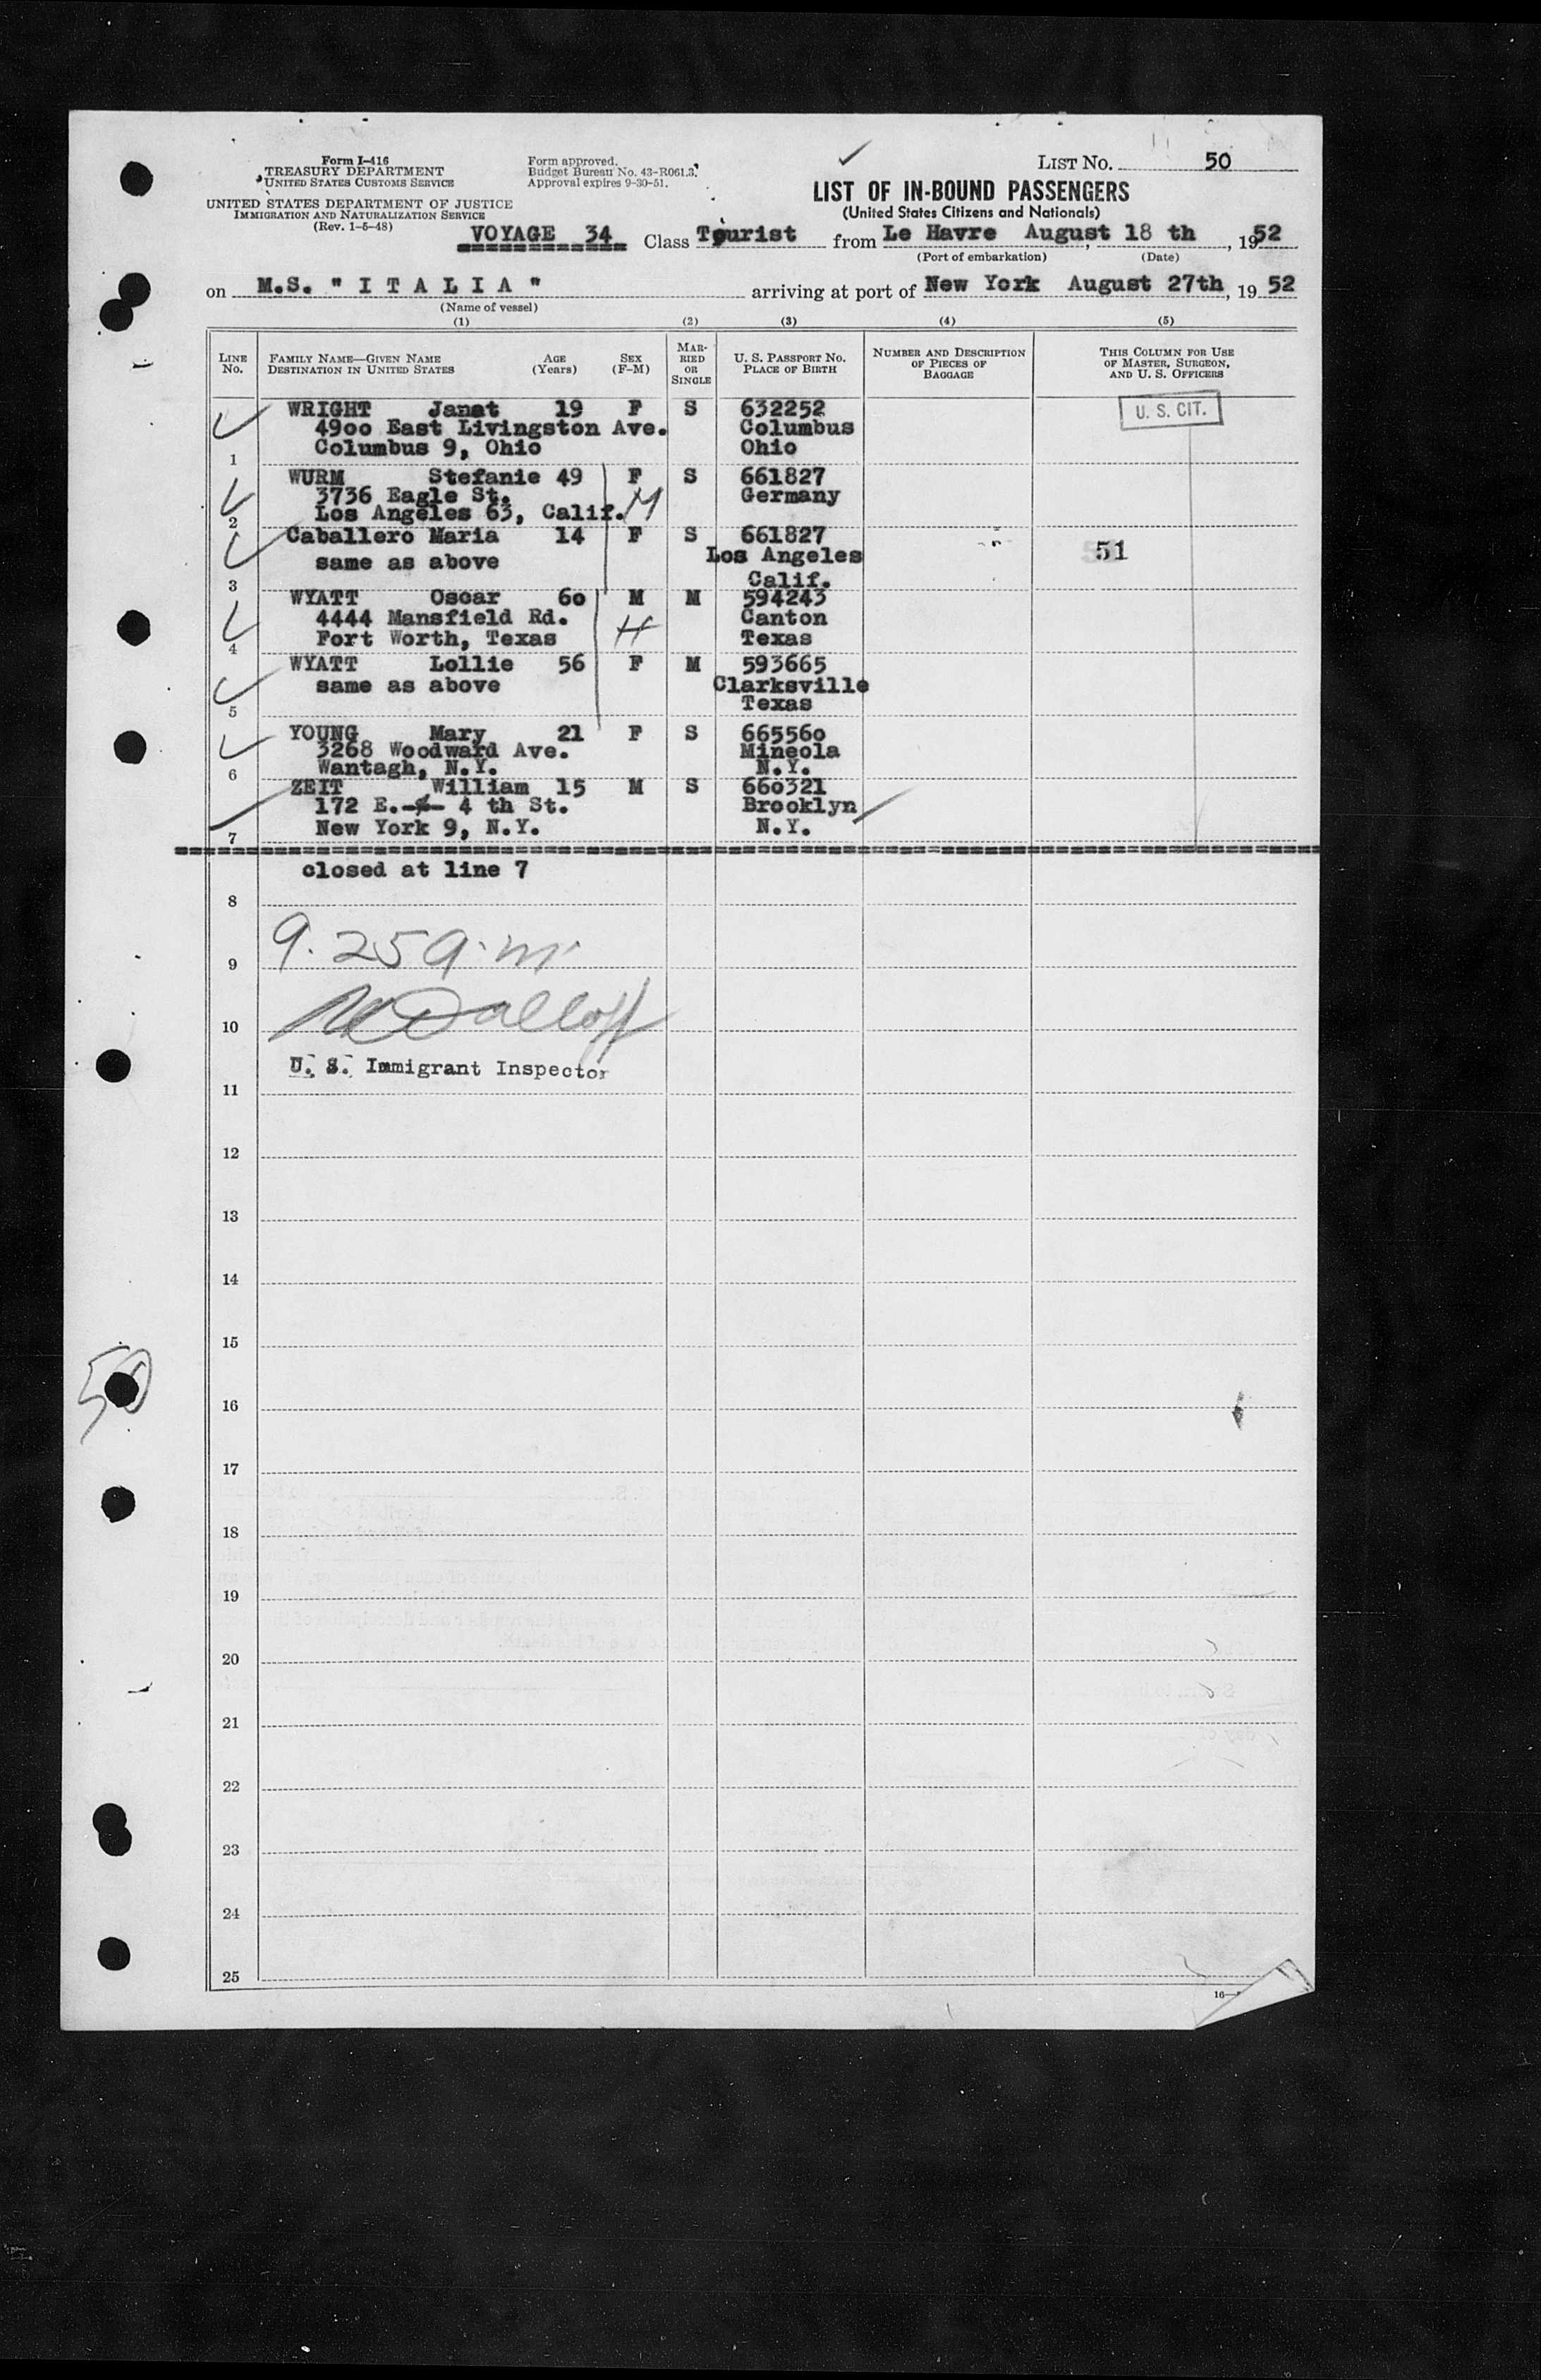 Form I-416
TREASURY DEPARTMENT
UNITED STATES CUSTOMS SERVICE
UNITED STATES DEPARTMENT OF JUSTICE
IMMIGRATION AND NATURALIZATION SERVICE
(Rev. 1-5-48)
Form approved.
Budget Bureau No. 43-R061.3.
Approval expires 9-30-51.
LIST NO. 50
LIST OF IN-BOUND PASSENGERS
(United States Citizens and Nationals)
VOYAGE 34 Class Tourist from Le Havre August 18 th, 1952
(Port of embarkation) (Date)
on M.S. " I T A L I A " arriving at port of New York August 27th, 19 52
(Name of vessel)
(1) (2) (3) (4) (5)
LINE NO. FAMILY NAME—GIVEN NAME DESTINATION IN UNITED STATES AGE (Years) SEX (F-M) MARRIED OR SINGLE U. S. PASSPORT NO. PLACE OF BIRTH NUMBER AND DESCRIPTION OF PIECES OF BAGGAGE THIS COLUMN FOR USE OF MASTER, SURGEON, AND U. S. OFFICERS
WRIGHT Janet 19 F S 632252 U. S. CIT.
4900 East Livingston Ave. Columbus
1 Columbus 9, Ohio Ohio
WURM Stefanie 49 F S 661827
3736 Eagle St. Germany
2 Los Angeles 63, Calif. M
Caballero Maria 14 F S 661827
same as above Los Angeles 51
3 Calif.
WYATT Oscar 60 M M 594243
4444 Mansfield Rd. Canton
4 Fort Worth, Texas H Texas
WYATT Lollie 56 F M 593665
same as above Clarksville
5 Texas
YOUNG Mary 21 F S 665560
3268 Woodward Ave. Mineola
6 Wantagh, N.Y. N.Y.
ZEIT William 15 M S 660321
172 E. 4 th St. Brooklyn
7 New York 9, N.Y. N.Y.
closed at line 7
8
9 9.25 a.m.
10
U. S. Immigrant Inspector
11
12
13
14
15
50
16
17
18
19
20
21
22
23
24
25
16—